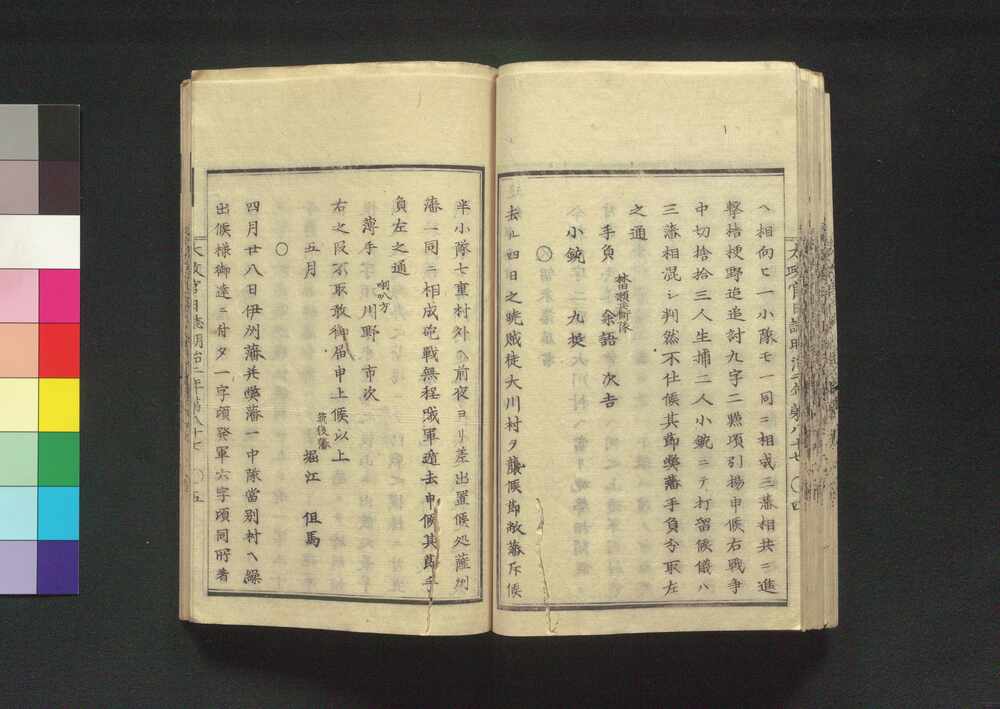 ヘ相向ヒ一小隊モ一同ニ相成三藩相共ニ進
撃桔梗野追追討九字二點項引揚申候右戦争
中切捨拾三人生捕二人小銃ニテ打留候儀ハ
三藩相混シ判然不仕候其節弊藩手負分取左
之通
林頭兵衛隊
手負 余語 次吉
小銃 二九挺
〇
去ル四日之暁賊徒大川村ヲ襲候節敝藩斥候
半小隊七重村外ヘ前夜ヨリ差出置候処薩州
藩一同ニ相成砲戦無程賊軍遁去申候其節手
負左之通
喇叭方
薄手 川野 市次
右之段不取敢御届申上候以上
五月 筑後藩 堀江 但馬
〇
四月廿八日伊州藩兵弊藩一中隊當別村ヘ繰
出候様御達ニ付夕一字頃発軍六字頃同所着
太政官日誌明治二年第八十七 〇四
太政官日誌明治二年第八十七 〇五